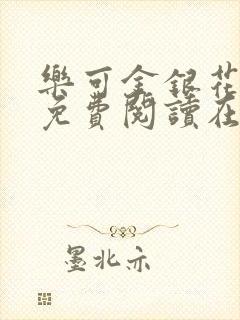 樂可金銀花
免費閱讀在
墨北亦